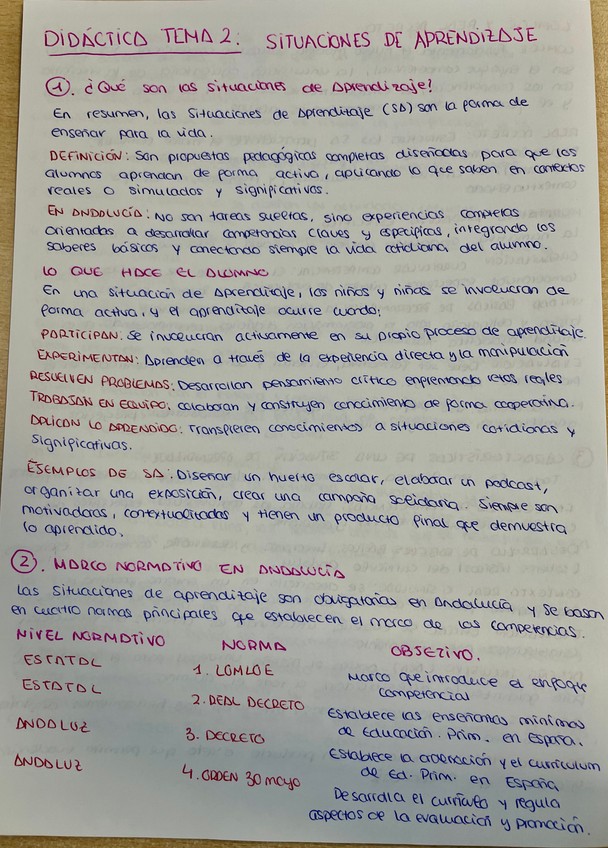 DIDÁCTICA TEMA 2: SITUACIONES DE APRENDIZAJE
1. ¿Qué son las situaciones de Aprendizaje?
En resumen, las Situaciones de Aprendizaje (SA) son la forma de
enseñar para la vida.
DEFINICIÓN: Son propuestas pedagógicas completas diseñadas para que los
alumnos aprendan de forma activa, aplicando lo que saben en contextos
reales o simulados y significativos.
EN ANDALUCÍA: No son tareas sueltas, sino experiencias completas
orientadas a desarrollar competencias claves y específicas, integrando los
saberes básicos y conectando siempre la vida cotidiana del alumno.
LO QUE HACE EL ALUMNO
En una situación de Aprendizaje, los niños y niñas se involucran de
forma activa, y el aprendizaje ocurre cuando;
PARTICIPAN: Se involucran activamente en su propio proceso de aprendizaje.
EXPERIMENTAN: Aprenden a través de la experiencia directa y la manipulación
RESUELVEN PROBLEMAS: Desarrollan pensamiento crítico enfrentando retos reales
TRABAJAN EN EQUIPO: colaboran y construyen conocimiento de forma cooperativa.
APLICAN LO APRENDIDO: Transfieren conocimientos a situaciones cotidianas y
significativas.
EJEMPLOS DE SA: Diseñar un huerto escolar, elaborar un podcast,
organizar una exposición, crear una campaña solidaria. Siempre son
motivadoras, contextualizadas y tienen un producto final que demuestra
lo aprendido.
2. MARCO NORMATIVO EN ANDALUCÍA
Las situaciones de aprendizaje son obligatorias en Andalucía y se basan
en cuatro normas principales que establecen el marco de las competencias.
NIVEL NORMATIVO NORMA OBJETIVO.
ESTATAL 1. LOMLOE Marco que introduce el enfoque
competencial
ESTATAL 2. REAL DECRETO Establece las enseñanzas mínimas
de Educación. Prim. en España.
ANDALUZ 3. DECRETO Establece la ordenación y el currículum
de Ed. Prim. en España
ANDALUZ 4. ORDEN 30 mayo Desarrolla el currículo y regula
aspectos de la evaluación y promoción.